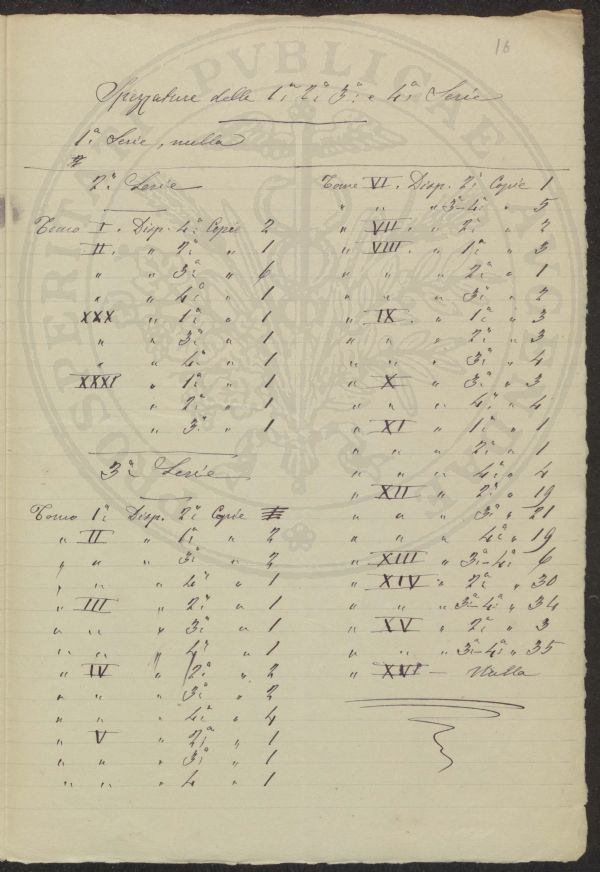 16
Spezzature delle 1ª 2ª 3ª e 4ª Serie
1ª Serie, nulla
2ª Serie
Tomo I. Disp. 4ª Copie 2
II. " 2ª " 1
" " 3ª " 6
" " 4ª " 1
XXX " 1ª " 1
" " 3ª " 1
" " 4ª " 1
XXXI " 1ª " 1
" 2ª " 1
" 3ª " 1
3ª Serie
Tomo 1º Disp. 2ª Copie
" II " 1ª " 2
" " " 3ª " 2
" " " 4ª " 1
" III " 2ª " 1
" " " 3ª " 1
" " " 4ª " 1
" IV " 2ª " 2
" " " 3ª " 2
" " " 4ª " 4
" V " 2ª " 1
" " " 3ª " 1
" " " 4 " 1
Tomo VI. Disp. 2ª Copie 1
" " " 3ª-4ª " 5
" VII " 2ª " 2
" VIII " 1ª " 3
" " " 2ª " 1
" " " 3ª " 2
" IX " 1ª " 3
" " " 2ª " 3
" " " 3ª " 4
" X " 3ª " 3
" " " 4ª " 4
" XI " 1ª " 1
" " " 2ª " 1
" " " 4ª " 4
" XII " 2ª " 19
" " " 3ª " 21
" " " 4ª " 19
" XIII " 3ª-4ª " 6
" XIV " 2ª " 30
" " " 3ª-4ª " 34
" XV " 2ª " 3
" " " 3ª-4ª " 35
" XVIº — Nulla
PVBLICAE